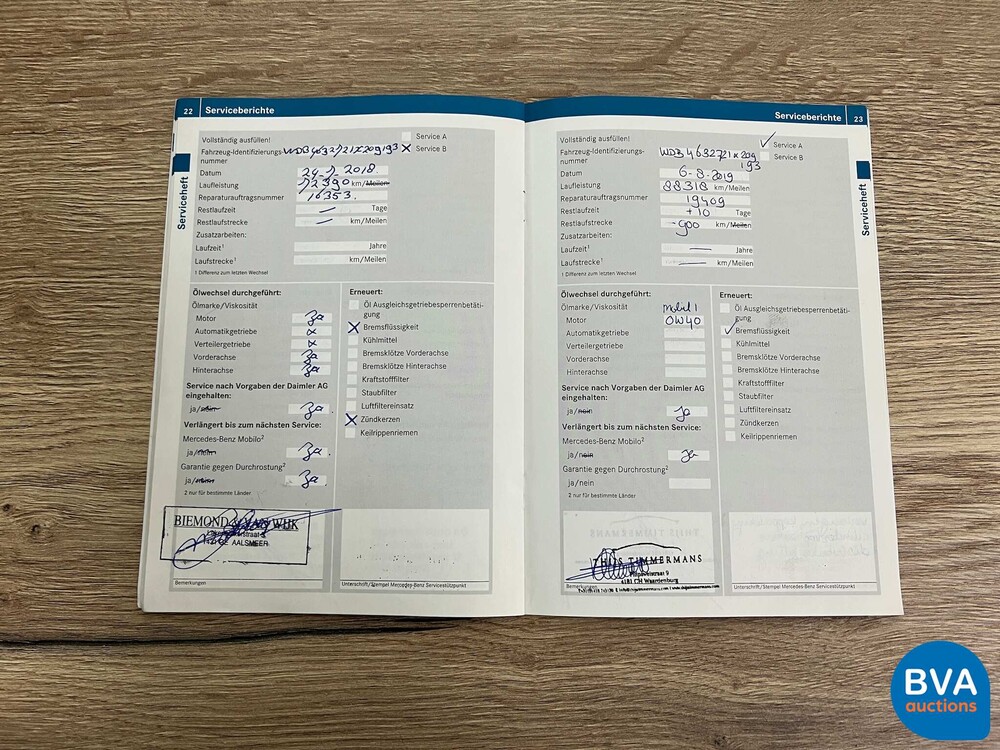 22 Serviceberichte
Vollständig ausfüllen!
Service A
Fahrzeug-Identifizierungs-
nummer
WDB4632721X209193
X Service B
Datum 24-7-2018
Laufleistung 72390 km/Meilen
Reparaturauftragsnummer 16353
Restlaufzeit — Tage
Restlaufstrecke — km/Meilen
Zusatzarbeiten:
Laufzeit¹ Jahre
Laufstrecke¹ km/Meilen
1 Differenz zum letzten Wechsel
Serviceheft
Ölwechsel durchgeführt:
Ölmarke/Viskosität
Motor Ja
Automatikgetriebe x
Verteilergetriebe x
Vorderachse Ja
Hinterachse Ja
Service nach Vorgaben der Daimler AG
eingehalten:
ja/nein Ja
Verlängert bis zum nächsten Service:
Mercedes-Benz Mobilo²
ja/nein Ja
Garantie gegen Durchrostung²
ja/nein Ja
2 nur für bestimmte Länder
Erneuert:
Öl Ausgleichsgetriebesperrenbetäti-
gung
X Bremsflüssigkeit
Kühlmittel
Bremsklötze Vorderachse
Bremsklötze Hinterachse
Kraftstofffilter
Staubfilter
Luftfiltereinsatz
X Zündkerzen
Keilrippenriemen
BIEMOND WIJK
AALSMEER
Bemerkungen
Unterschrift/Stempel Mercedes-Benz Servicestützpunkt
Serviceberichte 23
Vollständig ausfüllen!
✓ Service A
Fahrzeug-Identifizierungs-
nummer
WDB4632721x209
193
Service B
Datum 6-8-2019
Laufleistung 88318 km/Meilen
Reparaturauftragsnummer 19409
Restlaufzeit +10 Tage
Restlaufstrecke -900 km/Meilen
Zusatzarbeiten:
Laufzeit¹ — Jahre
Laufstrecke¹ — km/Meilen
1 Differenz zum letzten Wechsel
Serviceheft
Ölwechsel durchgeführt:
Ölmarke/Viskosität mobil 1
Motor 0W40
Automatikgetriebe
Verteilergetriebe
Vorderachse
Hinterachse
Service nach Vorgaben der Daimler AG
eingehalten:
ja/nein Ja
Verlängert bis zum nächsten Service:
Mercedes-Benz Mobilo²
ja/nein Ja
Garantie gegen Durchrostung²
ja/nein
2 nur für bestimmte Länder
Erneuert:
Öl Ausgleichsgetriebesperrenbetäti-
gung
✓ Bremsflüssigkeit
Kühlmittel
Bremsklötze Vorderachse
Bremsklötze Hinterachse
Kraftstofffilter
Staubfilter
Luftfiltereinsatz
Zündkerzen
Keilrippenriemen
THIJS TIMMERMANS
4181 CH Waardenburg
Bemerkungen
Unterschrift/Stempel Mercedes-Benz Servicestützpunkt
BVA
auctions